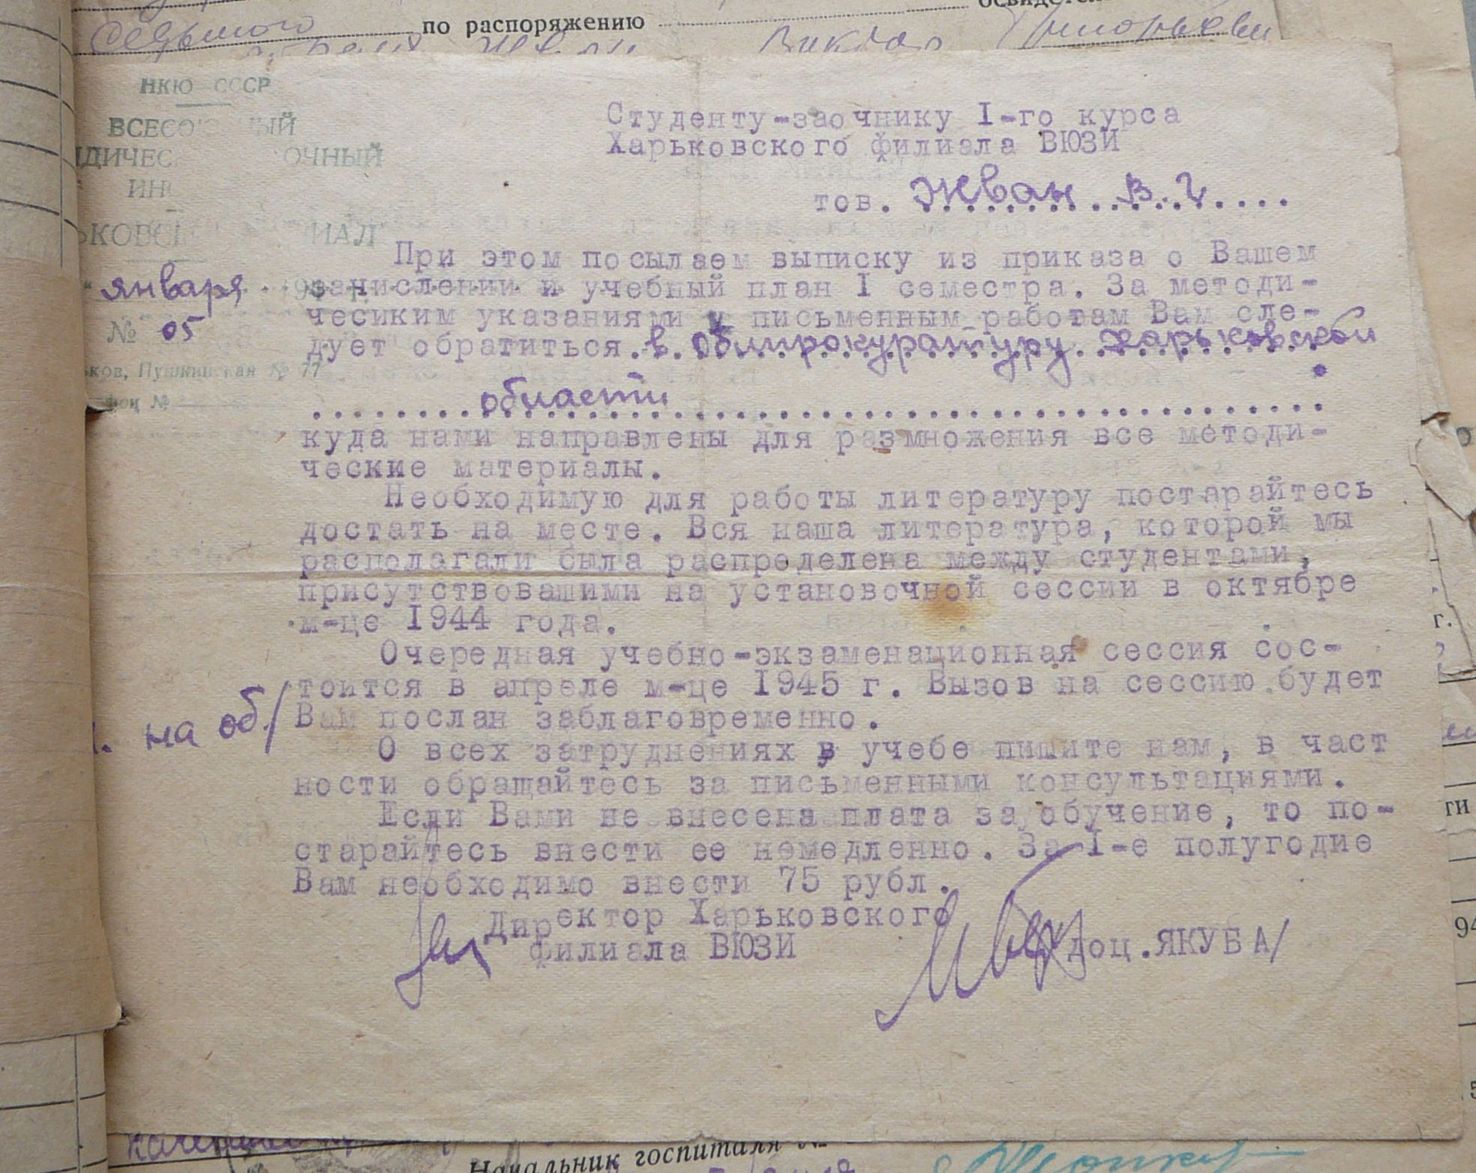 по распоряжению
НКЮ СССР
ВСЕСО ЫЙ
ДИЧЕС ОЧНЫЙ
ИН
КОВС ИАЛ
января 19
№ 05
ков, Пушкинская № 77
фон №
Студенту-заочнику I-го курса
Харьковского филиала ВЮЗИ
тов. Жван В. Г.
При этом посылаем выписку из приказа о Вашем
зачислении и учебный план I семестра. За методи-
чесиким указаниями и письменным работам Вам сле-
дует обратиться. в Облпрокуратуру Харьковской
области
куда нами направлены для размножения все методи-
ческие материалы.
Необходимую для работы литературу постарайтесь
достать на месте. Вся наша литература, которой мы
располагали была распределена между студентами,
присутствовашими на установочной сессии в октябре
м-це 1944 года.
Очередная учебно-экзаменационная сессия сос-
тоится в апреле м-це 1945 г. Вызов на сессию будет
Вам послан заблаговременно.
на об/
О всех затруднениях в учебе пишите нам, в част
ности обращайтесь за письменными консультациями.
Если Вами не внесена плата за обучение, то по-
старайтесь внести ее немедленно. За I-е полугодие
Вам необходимо внести 75 рубл.
Директор Харьковского
филиала ВЮЗИ
доц. ЯКУБА/
Начальник госпиталя №